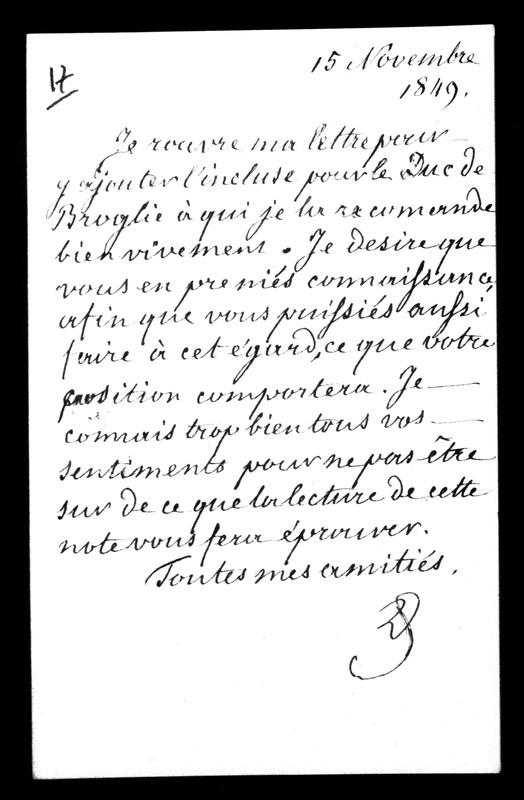 17
15 Novembre
1849.
Je rouvre ma lettre pour
y ajouter l'incluse pour le Duc de
Broglie à qui je la recomande
bien vivement. Je desire que
vous en preniés connaissance,
afin que vous puissiés aussi
faire à cet égard, ce que votre
position comportera. Je
connais trop bien tous vos
sentiments pour ne pas être
sur de ce que la lecture de cette
note vous fera éprouver.
Toutes mes amitiés.